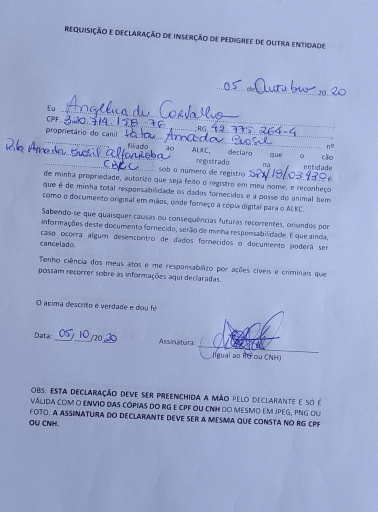 REQUISIÇÃO E DECLARAÇÃO DE INSERÇÃO DE PEDIGREE DE OUTRA ENTIDADE
05 de Outubro 20 20
Eu Angélica de Carvalho
CPF 320.714.158-76 RG 42.775.264-4
proprietário do canil Pata Amada Brasil nº
filiado ao ALKC, declaro que o cão
Pata Amada Brasil registrado na entidade
CBKC sob o número de registro
de minha propriedade, autorizo que seja feito o registro em meu nome, e reconheço
que é de minha total responsabilidade os dados fornecidos e a posse do animal bem
como o documento original em mãos, onde forneço a cópia digital para o ALKC.
Sabendo-se que quaisquer causas ou consequências futuras recorrentes, oriundos por
informações deste documento fornecido, serão de minha responsabilidade. E que ainda,
caso ocorra algum desencontro de dados fornecidos o documento poderá ser
cancelado.
Tenho ciência dos meus atos e me responsabilizo por ações cíveis e criminais que
possam recorrer sobre as informações aqui declaradas.
O acima descrito é verdade e dou fé
Data: 05/10/2020 Assinatura:
(Igual ao RG ou CNH)
OBS: ESTA DECLARAÇÃO DEVE SER PREENCHIDA A MÃO PELO DECLARANTE E SÓ É
VÁLIDA COM O ENVIO DAS CÓPIAS DO RG E CPF OU CNH DO MESMO EM JPEG, PNG OU
FOTO. A ASSINATURA DO DECLARANTE DEVE SER A MESMA QUE CONSTA NO RG CPF
OU CNH.